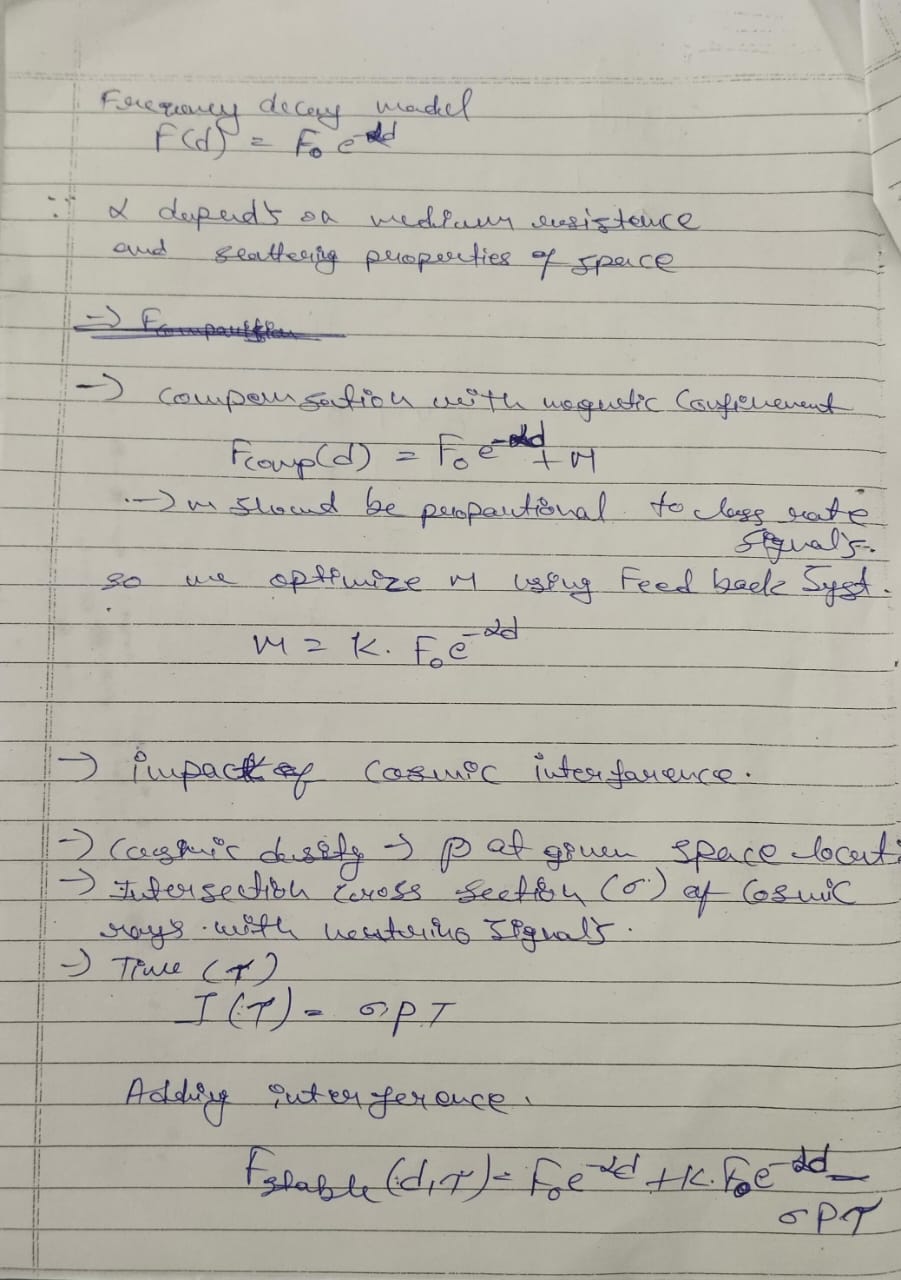 Frequency decay model
F(d) = F₀ e^-αd
∵ α depends on medium resistance
and scattering properties of space
→ compensation with magnetic Confinement
Fcomp(d) = F₀ e^-αd + M
→ M should be propartional to loss rate
signals.
so we optimize M using Feed back Syst.
M = K. F₀ e^-αd
→ impact of Cosmic interfarence.
→ Cosmic density → ρ at given space locati
→ Intersection Cross Section (σ) of Cosmic
rays with neutrino signals.
→ Time (T)
I(T) = σρT
Adding interference.
Fstable(d,T) = F₀e^-αd + K. F₀e^-αd −
σρT